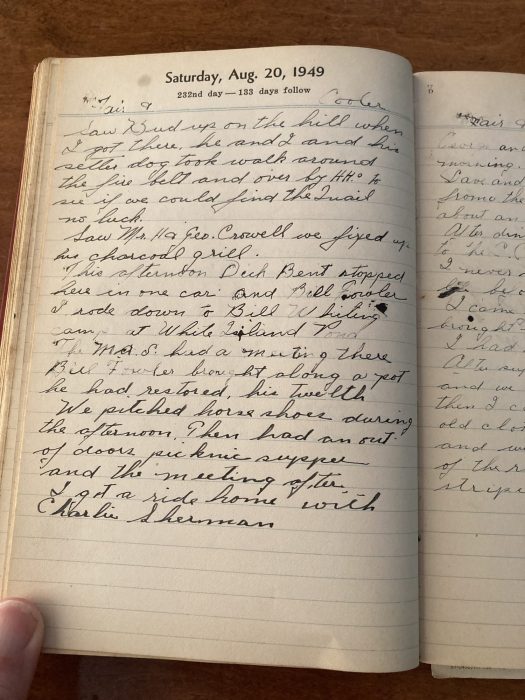 Saturday, Aug. 20, 1949
232nd day — 133 days follow
Fair & Cooler
Saw Bud up on the hill when
I got there, he and I and his
setter dog took walk around
the fire belt and over by HHº to
see if we could find the Quail
no luck.
Saw Mr. Geo. Crowell we fixed up
his charcoal grill.
This afternoon Dick Bent stopped
here in one car and Bill Fowler
I rode down to Bill Whiting
camp at White Island Pond
The M.A.S. had a meeting there
Bill Fowler brought along a pot
he had restored, his twelth
We pitched horse shoes during
the afternoon. Then had an out
of doors picknic supper
and the meeting after
I got a ride home with
Charlie Sherman
Fair &
morning.
Save and
from the
about an
After din
to the
I never
I came
brought
I had
After sup
and we
then I c
old clos
and w
of the r
stripe